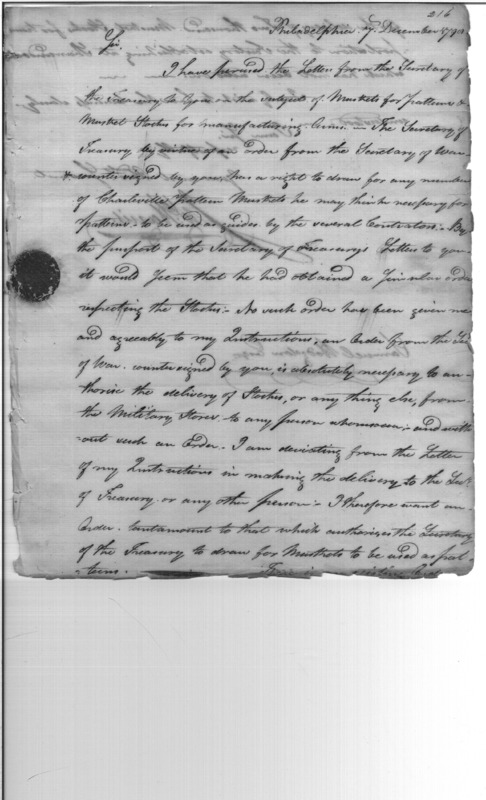 216
Philadelphia 7. December 1798
Sir.
I have perused the Letter from the Secretary of
the Treasury to you on the subject of Muskets for pattens &
Musket Stocks for manufacturing Arms. — The Secretary of
Treasury by virtue of an order from the Secretary of War
& countersigned by you, has a right to draw for any number
of Charleville pattern Muskets he may think necessary for
pattens - to be used as guides by the several Contractors. - By
the purport of the Secretary of Treasury's Letter to you
it would seem that he had obtained a similar order
respecting the Stocks: - No such order has been given me
and agreeably to my Instructions, an Order from the Sec
of War. countersigned by you, is absolutely necessary to au-
thorise the delivery of Stocks, or any thing else, from
the Military Stores to any person whomsoever: - and with
-out such an Order. I am deviating from the Letter
of my Instructions in making the delivery to the Secy
of Treasury or any other person: - I therefore want an
Order. tantamount to that which authorizes the Secretary
of the Treasury to draw for Muskets to be used as pat
-terns.